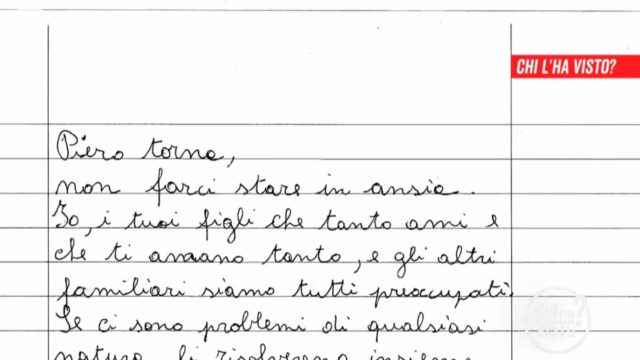 CHI L'HA VISTO?
Piero torna,
non farci stare in ansia.
Io, i tuoi figli che tanto ami e
che ti amano tanto, e gli altri
familiari siamo tutti preoccupati.
Se ci sono problemi di qualsiasi
natura li risolveremo insieme